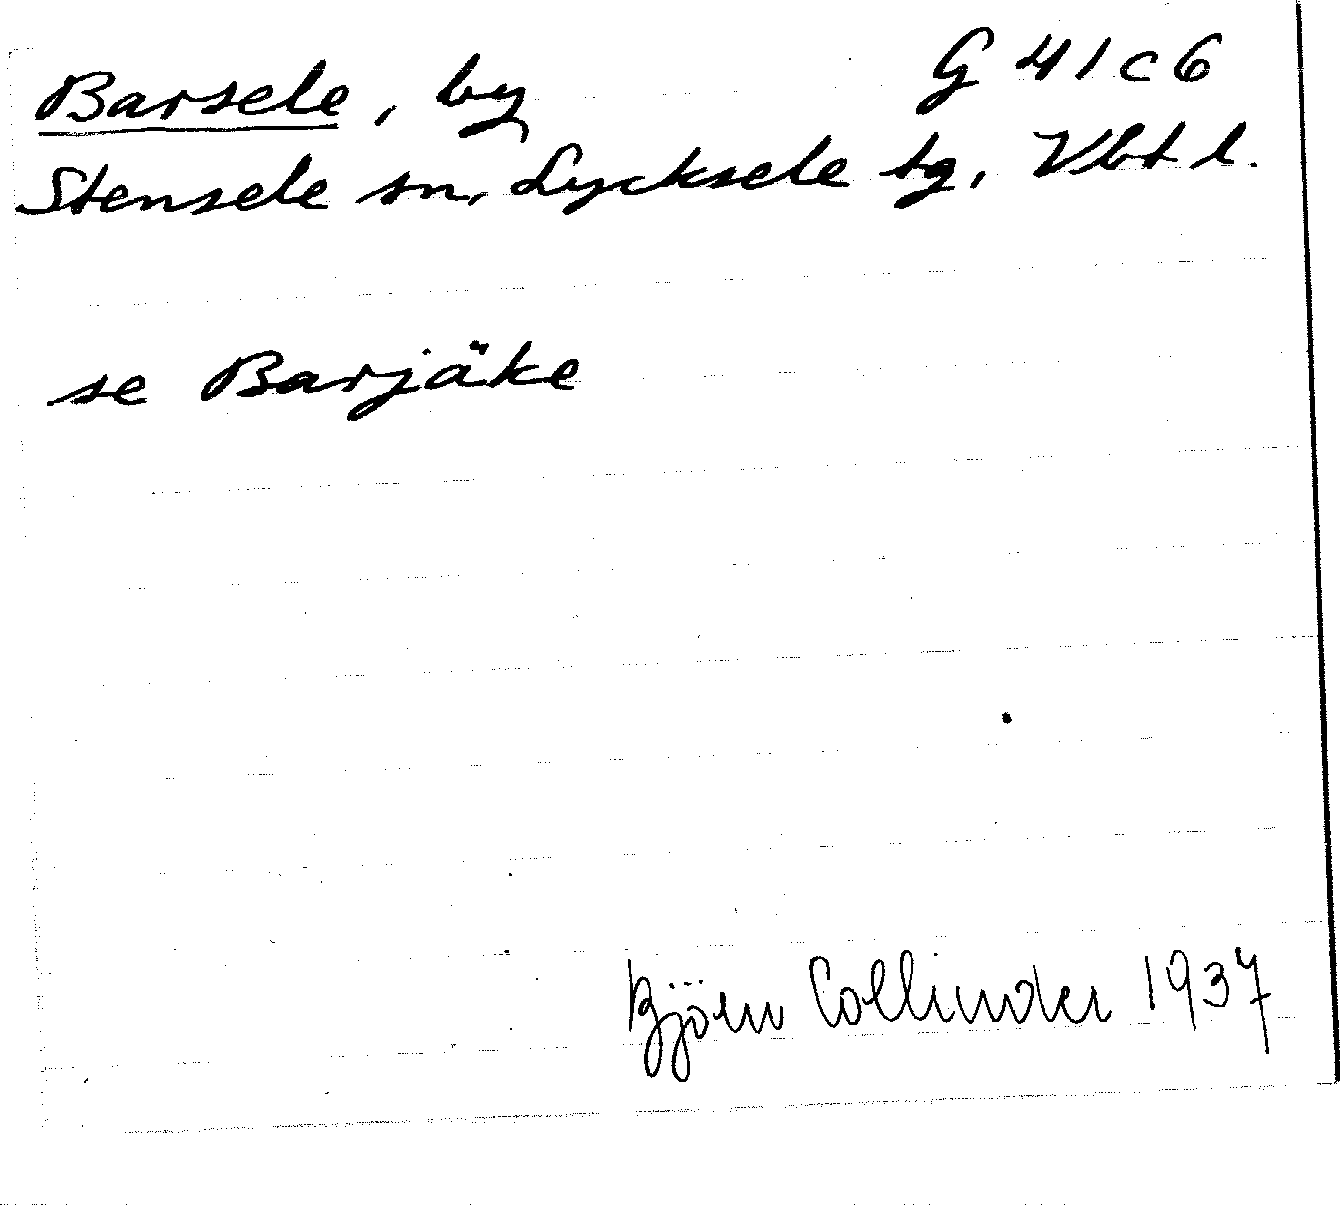 Barsele, by G 41 c 6
Stensele sn, Lycksele tg, Vbt l.
se Barjäke
Björn Collinder 1937